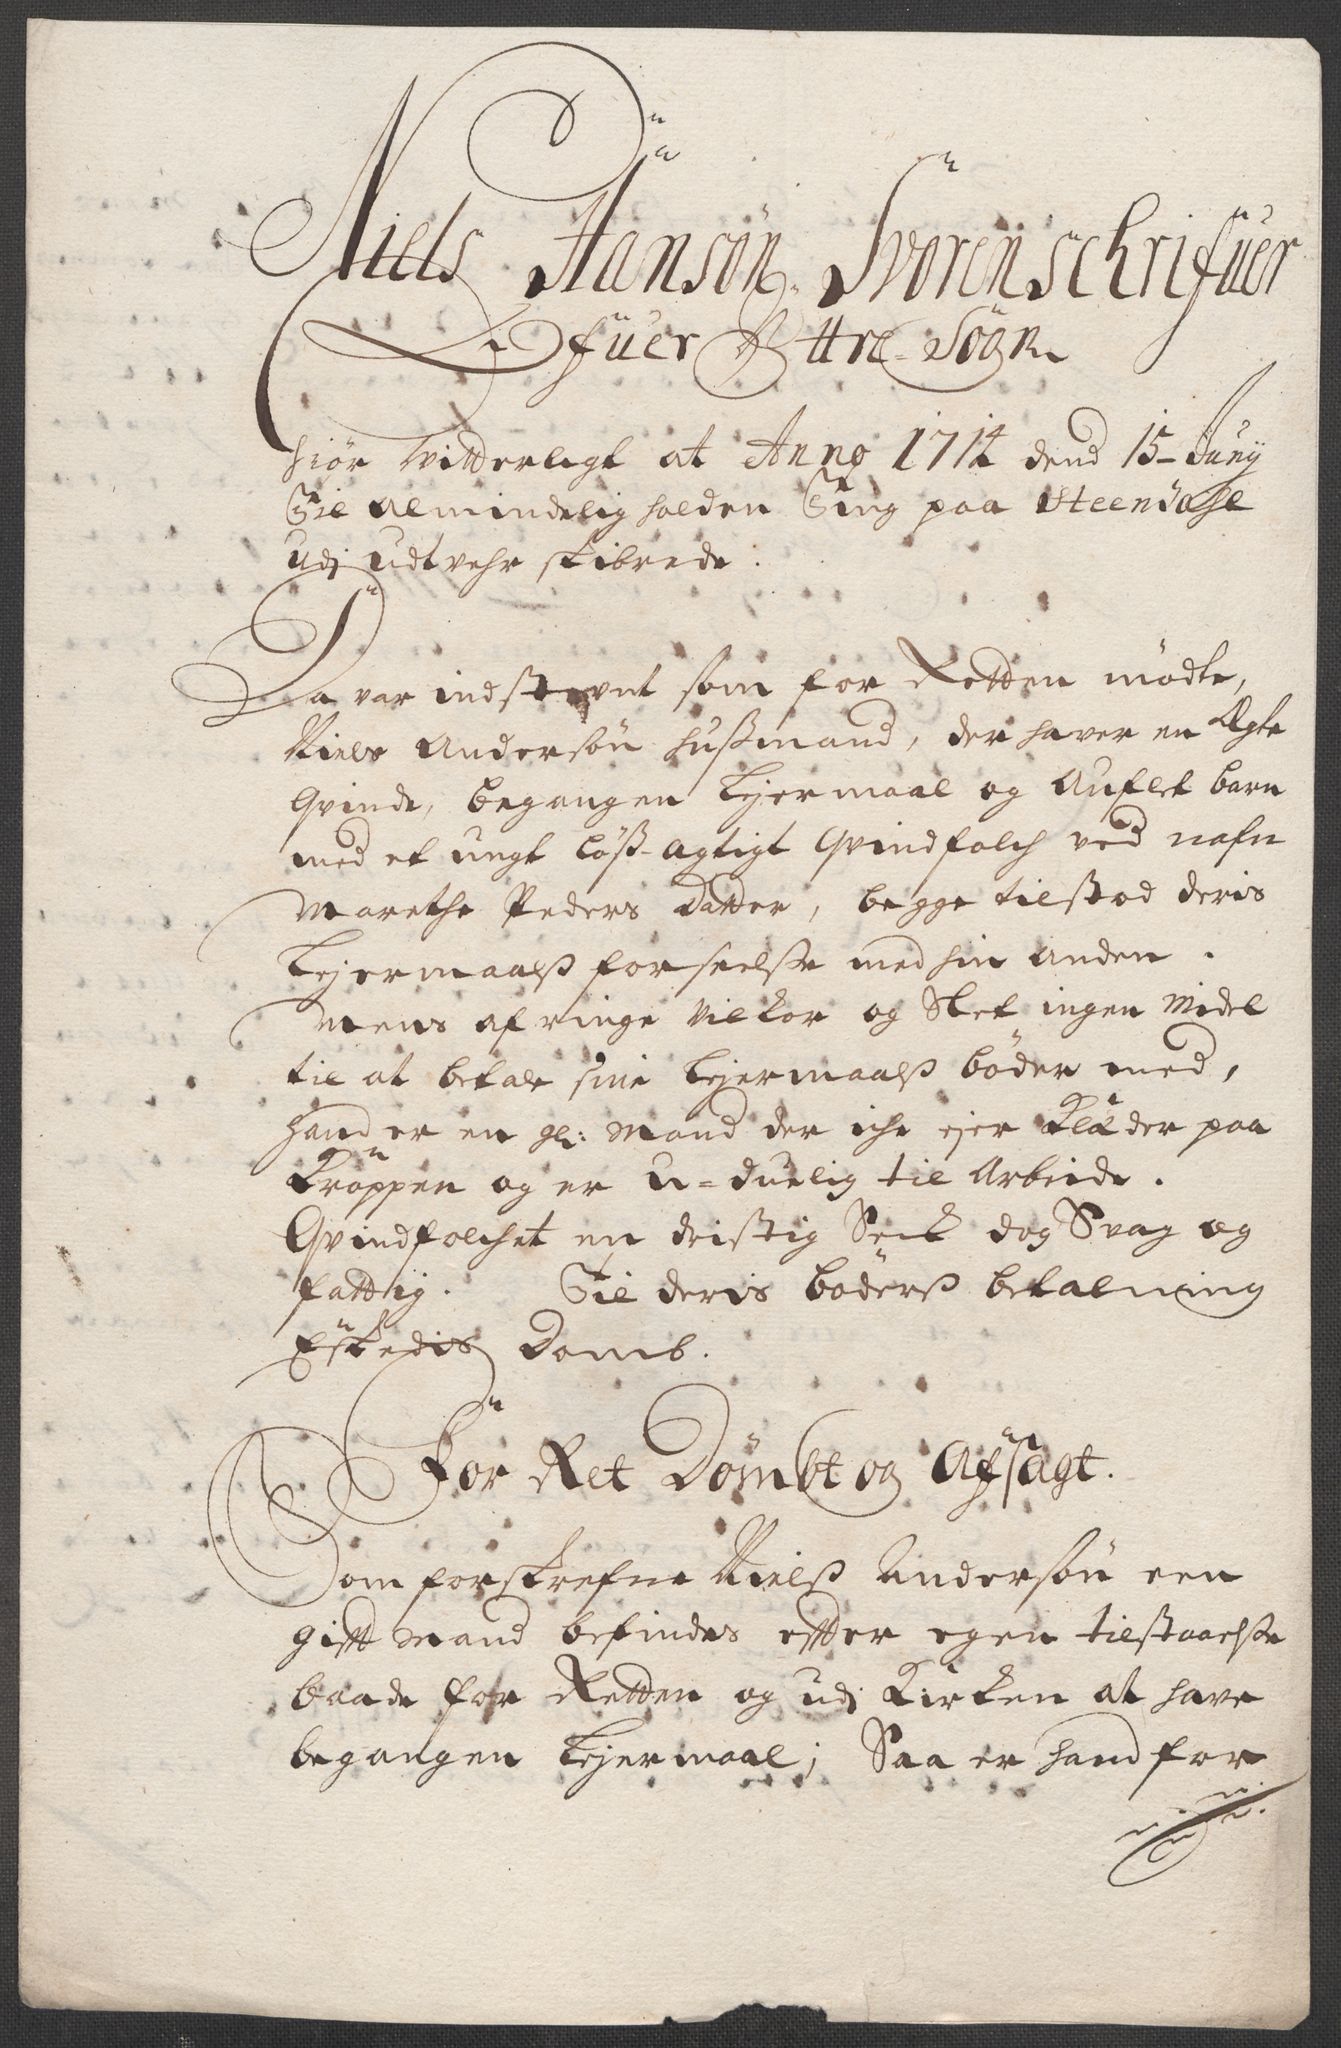 Niels Hansøn Svorenschrifuer
Ofuer Yttre Sogn
Hiør Vitterligt at Anno 1714 dend 15 Juny
Til Almindelig holden Ting paa Steendahl
Udj Udtvehr skibrede.
Da var indstevnt som for Retten mødte,
Niels Andersøn Hussmand, der haver en Egte
Qvinde, begangen Lejermaal og Auflet barn
med et ungt Løss-agtigt Qvindfolch ved nafn
Marethe Peders Datter, begge tilstod deris
Lejermaalss forseelsse med hin anden.
Mens af ringe Vilkor og Slet ingen Midel
til at betale sine Lejermaalss bøder med,
Hand er en gl: Mand der iche ejer Klæder paa
Kroppen og er u-duelig til Arbeide.
Qvindfolchet en dristig Seck dog Svag og
fattig. Til deris bøderss betalning
Eskedis Domb.
For Ret Dømbt og Afsagt.
Som forskrefne Nielss Andersøn een
gift Mand befindes efter egen tilstaaelsse
baade for Retten og udj Kirken at have
begangen Lejermaal; Saa er hand for